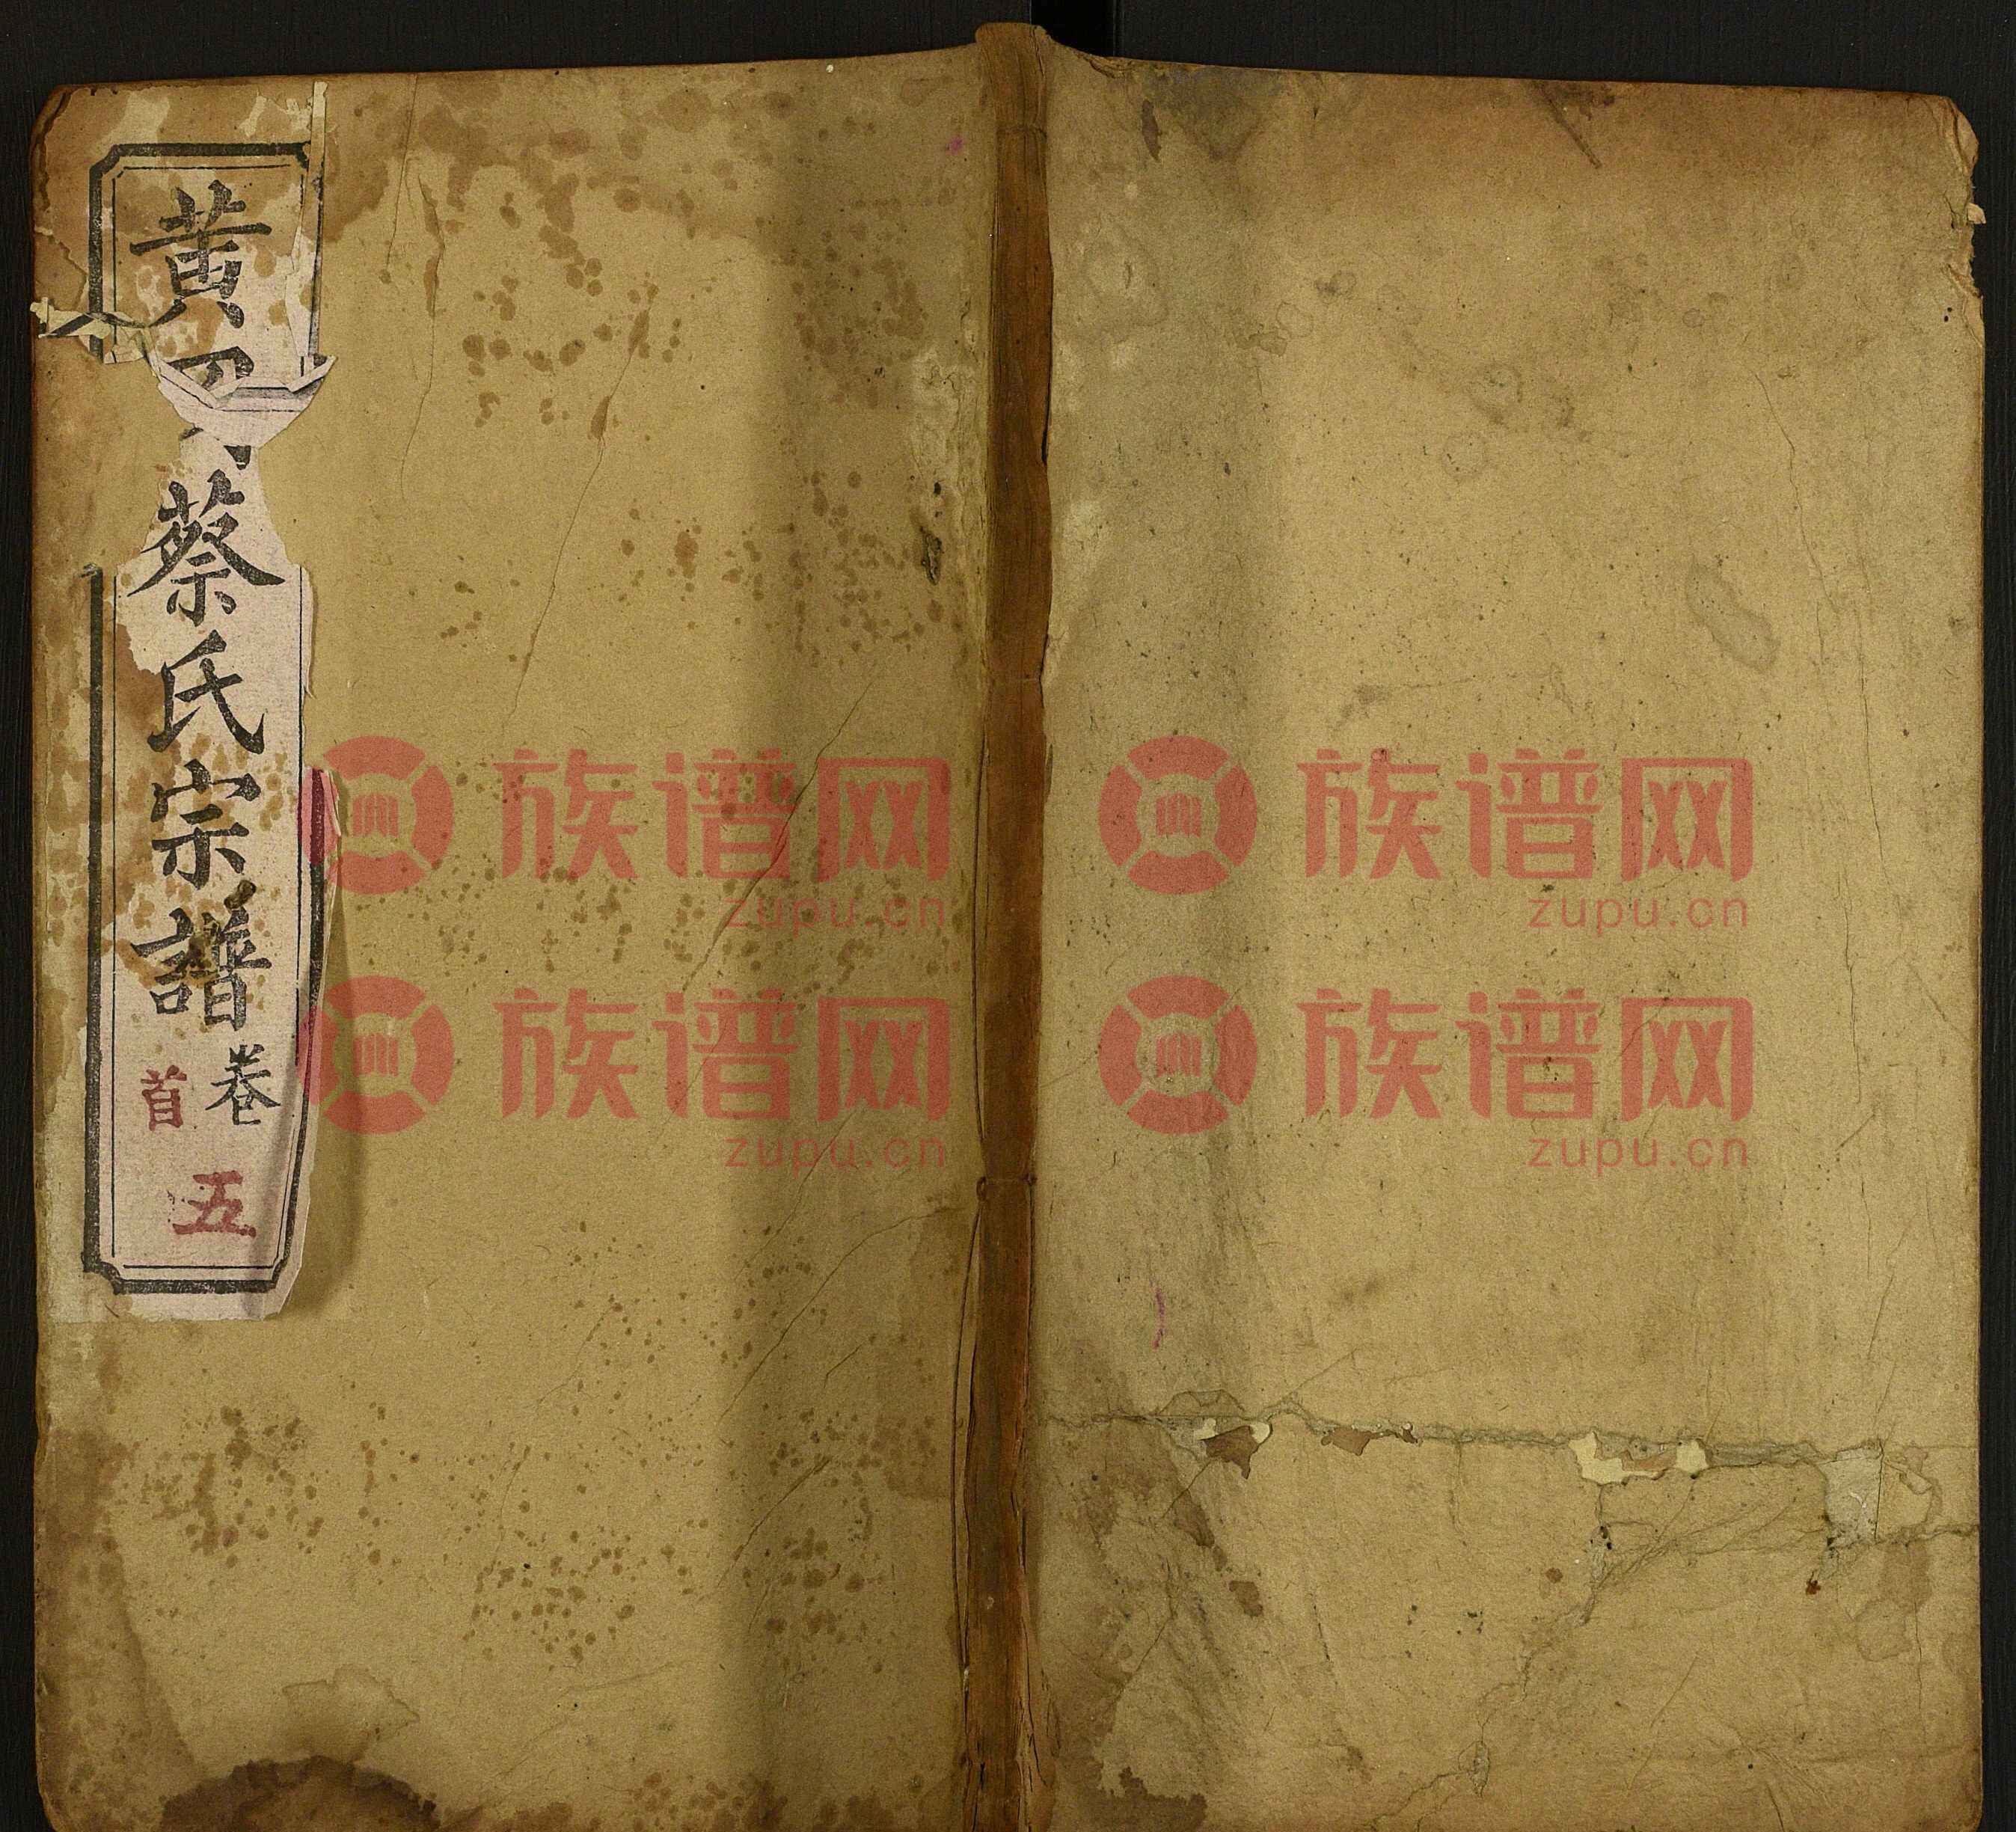 黃
蔡氏宗譜
卷
首
五
族谱网
zupu.cn
族谱网
zupu.cn
族谱网
zupu.cn
族谱网
zupu.cn